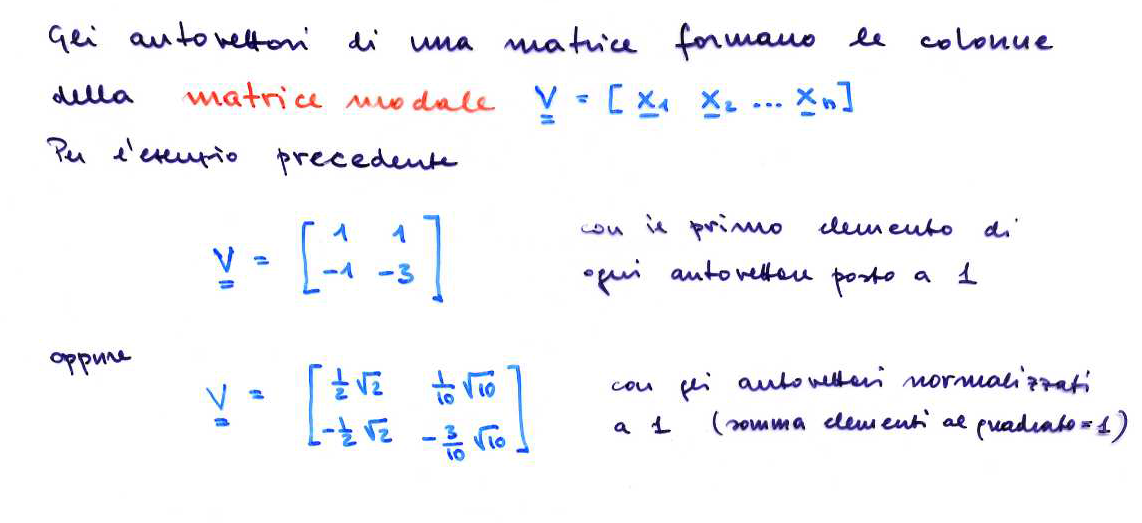 Gli autovettori di una matrice formano le colonne
della matrice modale V = [ x1 x2 ... xn ]
Per l'esempio precedente
V = [ 1 1 ; -1 -3 ] con il primo elemento di
ogni autovettore posto a 1
oppure
V = [ 1/2 √2 1/10 √10 ; -1/2 √2 -3/10 √10 ] con gli autovettori normalizzati
a 1 (somma elementi al quadrato = 1)